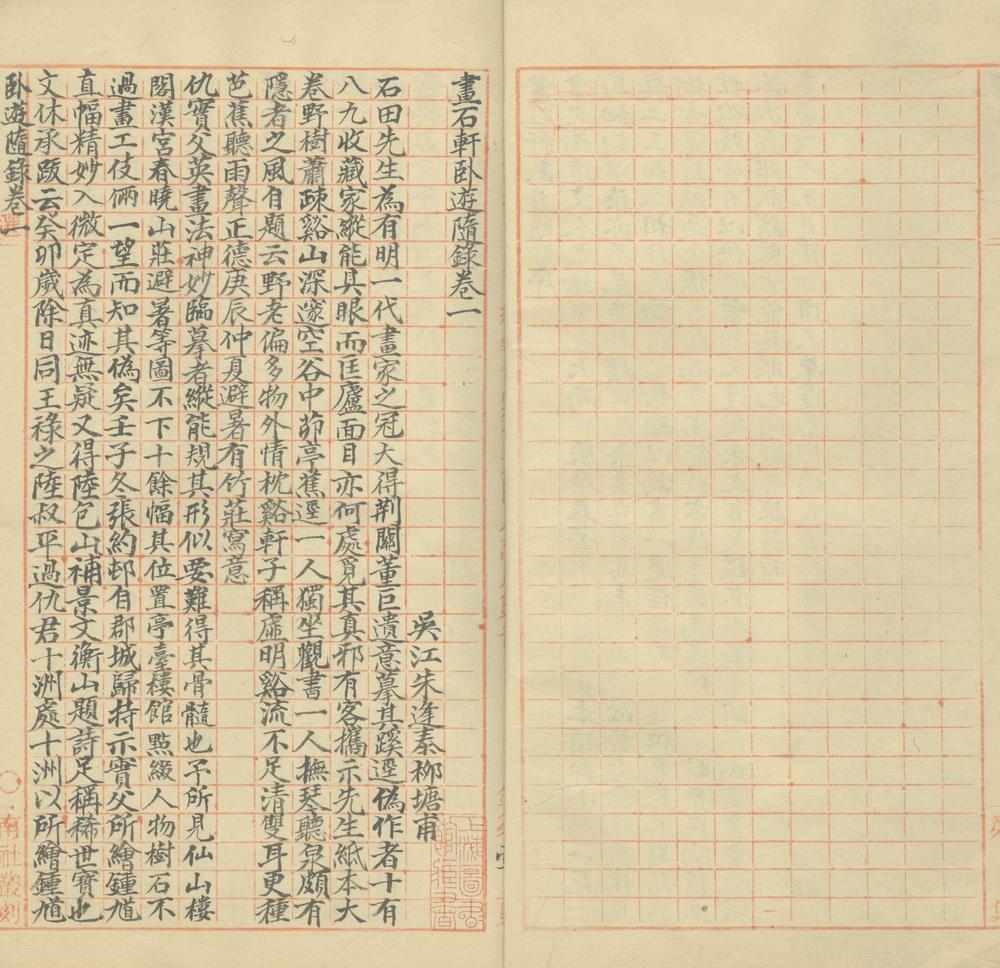 畫石軒卧遊隨錄卷一
吳江朱逢泰柳塘甫
石田先生為有明一代畫家之冠大得荆關董巨遺意摹其蹊逕偽作者十有
八九收藏家縱能具眼而匡廬面目亦何處覓其真邪有客攜示先生紙本大
卷野樹蕭疎谿山深邃空谷中茆亭蕉逕一人獨坐觀書一人撫琴聽泉頗有
隱者之風自題云野老偏多物外情枕谿軒子稱虛明谿流不足清雙耳更種
芭蕉聽雨聲正德庚辰仲夏避暑有竹莊寫意
仇實父英畫法神妙臨摹者縱能規其形似要難得其骨髓也予所見仙山樓
閣漢宮春曉山莊避暑等圖不下十餘幅其位置亭臺樓館點綴人物樹石不
過畫工伎倆一望而知其偽矣壬子冬張約邨自郡城歸持示實父所繪鍾馗
直幅精妙入微定為真迹無疑又得陸包山補景文衡山題詩足稱稀世寶也
文休承䟦云癸卯歲除日同王祿之陸叔平過仇君十洲處十洲以所繪鍾馗
卧遊隨錄卷一
一
南社叢刻
上海圖書館藏書